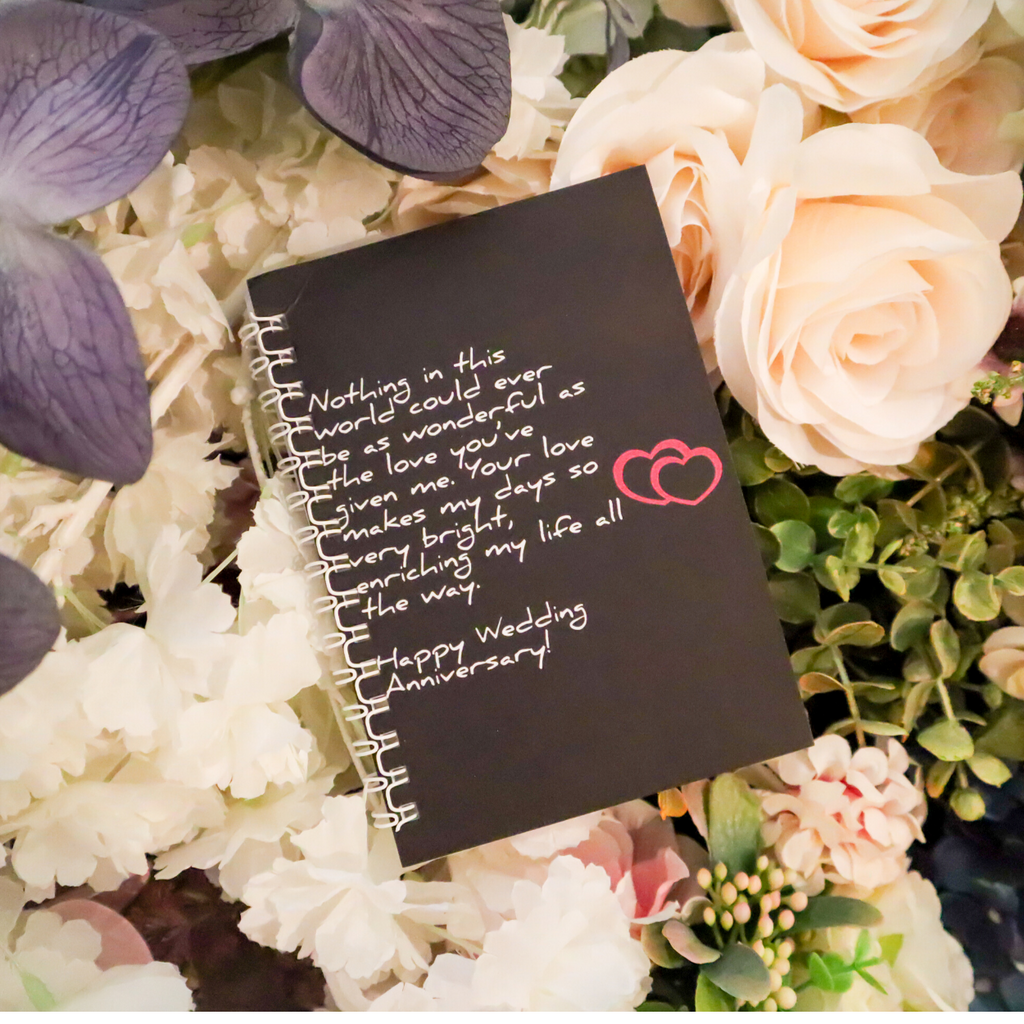 Nothing in this
world could ever
be as wonderful as
the love you've
given me. Your love
makes my days so
very bright,
enriching my life all
the way.
Happy Wedding
Anniversary!